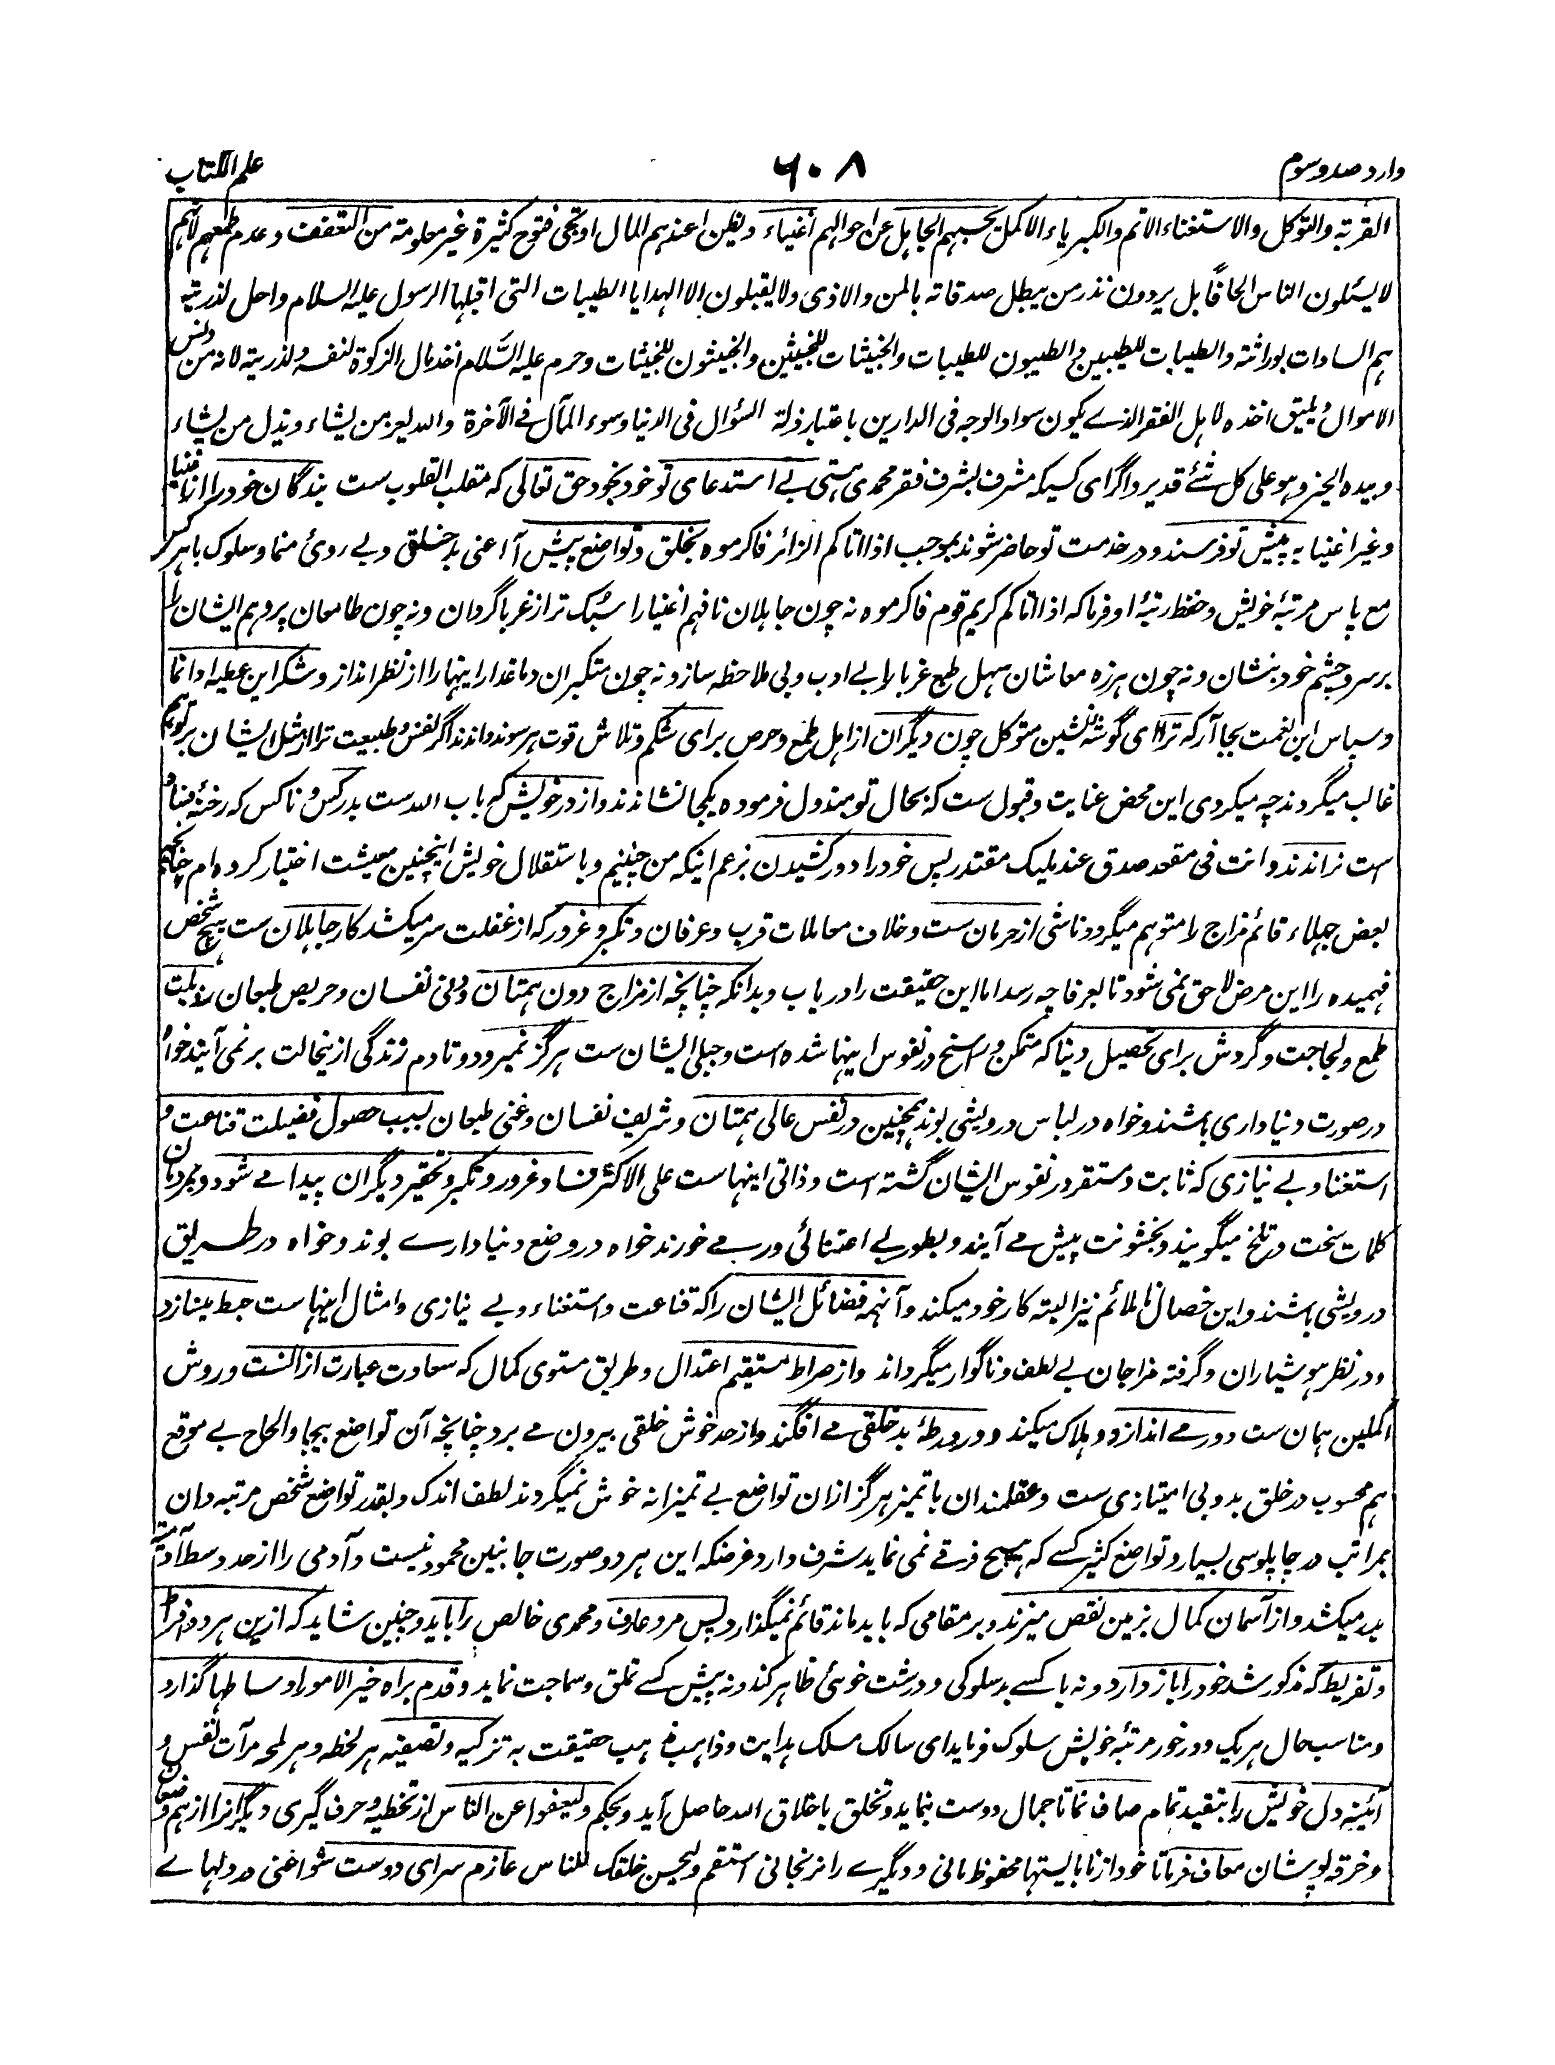 وارد صد و سوم ۶۰۸ علم الکتاب
القربة والتوکل والاستغناء الاتم والکبریاء الاکمل یحسبهم الجاهل عن احوالهم اغنیاء ویظن اعندهم المال او تجی فتوح کثیرة غیر معلومة من التعفف وعدم طمعهم لانهم
لا یسئلون الناس الحافًا بل یردون نذر من یبطل صدقاته بالمن والاذی ولا یقبلون الا الهدایا الطیبات التی اقبلها الرسول علیه السلام واحل لذریته
هم السادات بوراثته والطیبات للطیبین والطیبون للطیبات والخبیثات للخبیثین والخبیثون للخبیثات وحرم علیه السّلام اخذ مال الزکوة لنفسه ولذریته لانه من دنس
الاموال ویلیق اخذه لاهل الفقر الذے یکون سواد الوجه فی الدارین باعتبار ذلة السؤال فی الدنیا وسوء المآل فے الآخرة والله یعز من یشاء ویذل من یشاء
وبیده الخیر وهو علی کل شئے قدیر و اگر ای کسیکه مشرف بشرف فقر محمدی هستی بے استدعای تو خود بخود حق تعالی که مقلب القلوب ست بندگان خود را از اغنیا
وغیر اغنیا به پیش تو فرسند و در خدمت تو حاضر شوند بموجب اذا اتاکم الزائر فاکرموه بخلق و تواضع پیش آ اعنی بد خلقی و بے روئ منما و سلوک با هر کس
مع پاس مرتبهٔ خویش و حفظ رتبهٔ او فرما که اذا اتاکم کریم قوم فاکرموه نه چون جاهلان نافهم اغنیا را سبک تر از غربا گردان و نه چون طامعان پر و هم ایشان را
بر سر و چشم خود بنشان و نه چون هرزه معاشان سهل طبع غربا را بے ادب و بی ملاحظه ساز و نه چون متکبران دماغدار اینها را از نظر انداز و شکر این عطیه ادا نما
و سپاس این نعمت بجا آر که ترا ای گوشه نشین متوکل چون دیگران از اهل طمع و حرص برای شکم و تلاش قوت هر سو ندواندند اگر نفس و طبیعت ترا از مثل ایشان بر تو هم
غالب میگردند چه میکردی این محض عنایت و قبول ست که بحال تو مبذول فرموده یکجا نشاندند و از در خویش که باب الله ست بدر کس و ناکس که رخنهٔ فنا
است نراندند و انت فی مقعد صدق عند ملیک مقتدر پس خود را دور کشیدن بزعم اینکه من چنینم و باستقلال خویش اینچنین معیشت اختیار کرده ام چنانچه
بعض جهلاء قائم مزاج را متوهم میگردد ناشی از حرمان ست و خلاف معاملات قرب و عرفان و تکبر و غرور که از غفلت سر میکشد کار جاهلان ست هیچ شخص
فهمیده را این مرض لاحق نمی شود تا بعرفا چه رسد اما این حقیقت را دریاب و بدانکه چنانچه از مزاج دون همتان و دنی نفسان و حریص طبعان رذیلت
طمع و لجاجت و گردش برای تحصیل دنیا که متمکن و راسخ در نفوس اینها شده است و جبلی ایشان ست هرگز نمیرود و تا دم زندگی ازینحالت بر نمی آیند خواه
در صورت دنیاداری باشند و خواه در لباس درویشی بوند همچنین در نفس عالی همتان و شریف نفسان و غنی طبعان بسبب حصول فضیلت قناعت و
استغنا و بے نیازی که ثابت و مستقر در نفوس ایشان گشته است و ذاتی اینهاست علی الاکثر فساد غرور و تکبر و تحقیر دیگران پیدا مے شود و بمردمان
کلمات سخت و تلخ میگویند و بخشونت پیش مے آیند و بطور بے اعتنائی ور بے خورند خواه در وضع دنیا دارے بوند و خواه در طریق
درویشی باشند و این خصال ناملائم نیز البته کار خود میکند و آنهمه فضائل ایشان را که قناعت و استغناء و بے نیازی و امثال اینهاست حبط میسازد
و در نظر هوشیاران و گرفته مزاجان بے لطف و ناگوار میگرداند و از صراط مستقیم اعتدال و طریق مستوی کمال که سعادت عبارت از انست و روش
اکملین همان ست دور مے اندازد و هلاک میکند و در ورطهٔ بد خلقی مے افگند و از حد خوش خلقی بیرون مے برد چنانچه آن تواضع بیجا و الحاح بے موقع
هم محسوب در خلق بد و بی امتیازی ست و عقلمندان با تمیز هرگز ازان تواضع بے تمیزانه خوش نمیگردند لطف اندک و بقدر تواضع شخص مرتبه دان
بمراتب در چاپلوسی بسیار و تواضع کثیر کسے که هیچ فرقے نمی نماید شرف دارد غرضکه این هر دو صورت جانبین محمود نیست و آدمی را از حد وسط آدمیت
بدر میکشد و از آسمان کمال بزمین نقص میزند و بر مقامی که باید ماند قائم نمیگذارد پس مرد عارف و محمدی خالص را باید و چنین شاید که ازین هر دو افراط
و تفریط که مذکور شد خود را باز دارد و نه با کسے بد سلوکی و درشت خوئی ظاهر کند و نه پیش کسے تملق و سماجت نماید و قدم براه خیر الامور اوساطها گذارد
و مناسب حال هر یک و در خور مرتبهٔ خویش سلوک فرماید ای سالک مسلک هدایت و ذاهب مذهب حقیقت به تزکیه و تصفیه هر لحظه و هر لمحه مرآت نفس و
آئینه دل خویش را بتقید تمام صاف نما تا جمال دوست بنماید و تخلق باخلاق الله حاصل آید و بحکم ولیعفوا عن الناس از تخطیه و حرف گیری دیگرانرا از هم وضعان
و خرقه پوشان معاف فرما تا خود از نابایستها محفوظ مانی و دیگرے را نرنجانی استقم ولیحسن خلقک للناس عازم سرای دوست شو اعنی در دلهاے